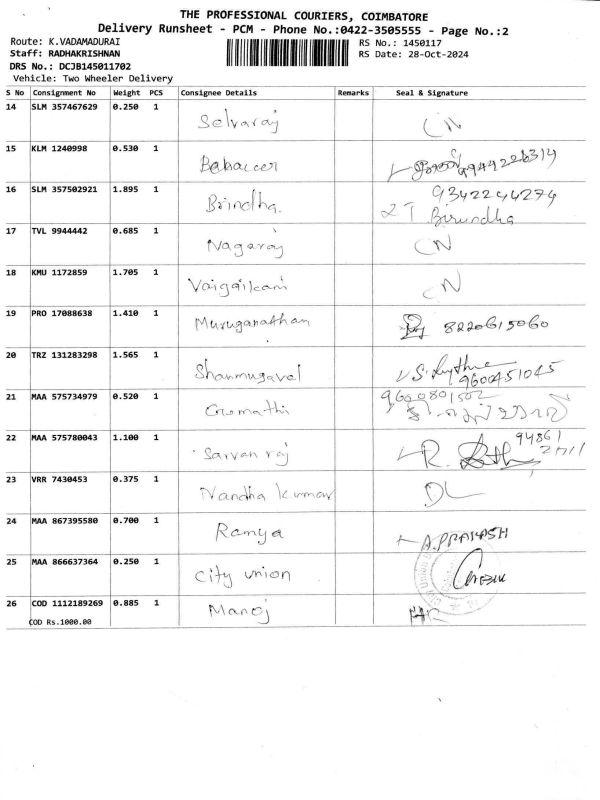 THE PROFESSIONAL COURIERS, COIMBATORE
Delivery Runsheet - PCM - Phone No.:0422-3505555 - Page No.:2
Route: K.VADAMADURAI
RS No.: 1450117
Staff: RADHAKRISHNAN
RS Date: 28-Oct-2024
DRS No.: DCJB145011702
Vehicle: Two Wheeler Delivery
S No Consignment No Weight PCS Consignee Details Remarks Seal & Signature
14 SLM 357467629 0.250 1 Selvaraj CN
15 KLM 1240998 0.530 1
16 SLM 357502921 1.895 1 Brindha. 9342244274
T Birundha
17 TVL 9944442 0.685 1 Nagaraj CN
18 KMU 1172859 1.705 1 CN
19 PRO 17088638 1.410 1 Muruganathan 8220615060
20 TRZ 131283298 1.565 1 Shanmugavel
9600451045
21 MAA 575734979 0.520 1 Gomathi 9600801502
22 MAA 575780043 1.100 1 Sarvan raj R.
23 VRR 7430453 0.375 1 Nandha kumar DL
24 MAA 867395580 0.700 1 Ramya A.PRAKASH
25 MAA 866637364 0.250 1 City union
26 COD 1112189269 0.885 1 Manoj
COD Rs.1000.00